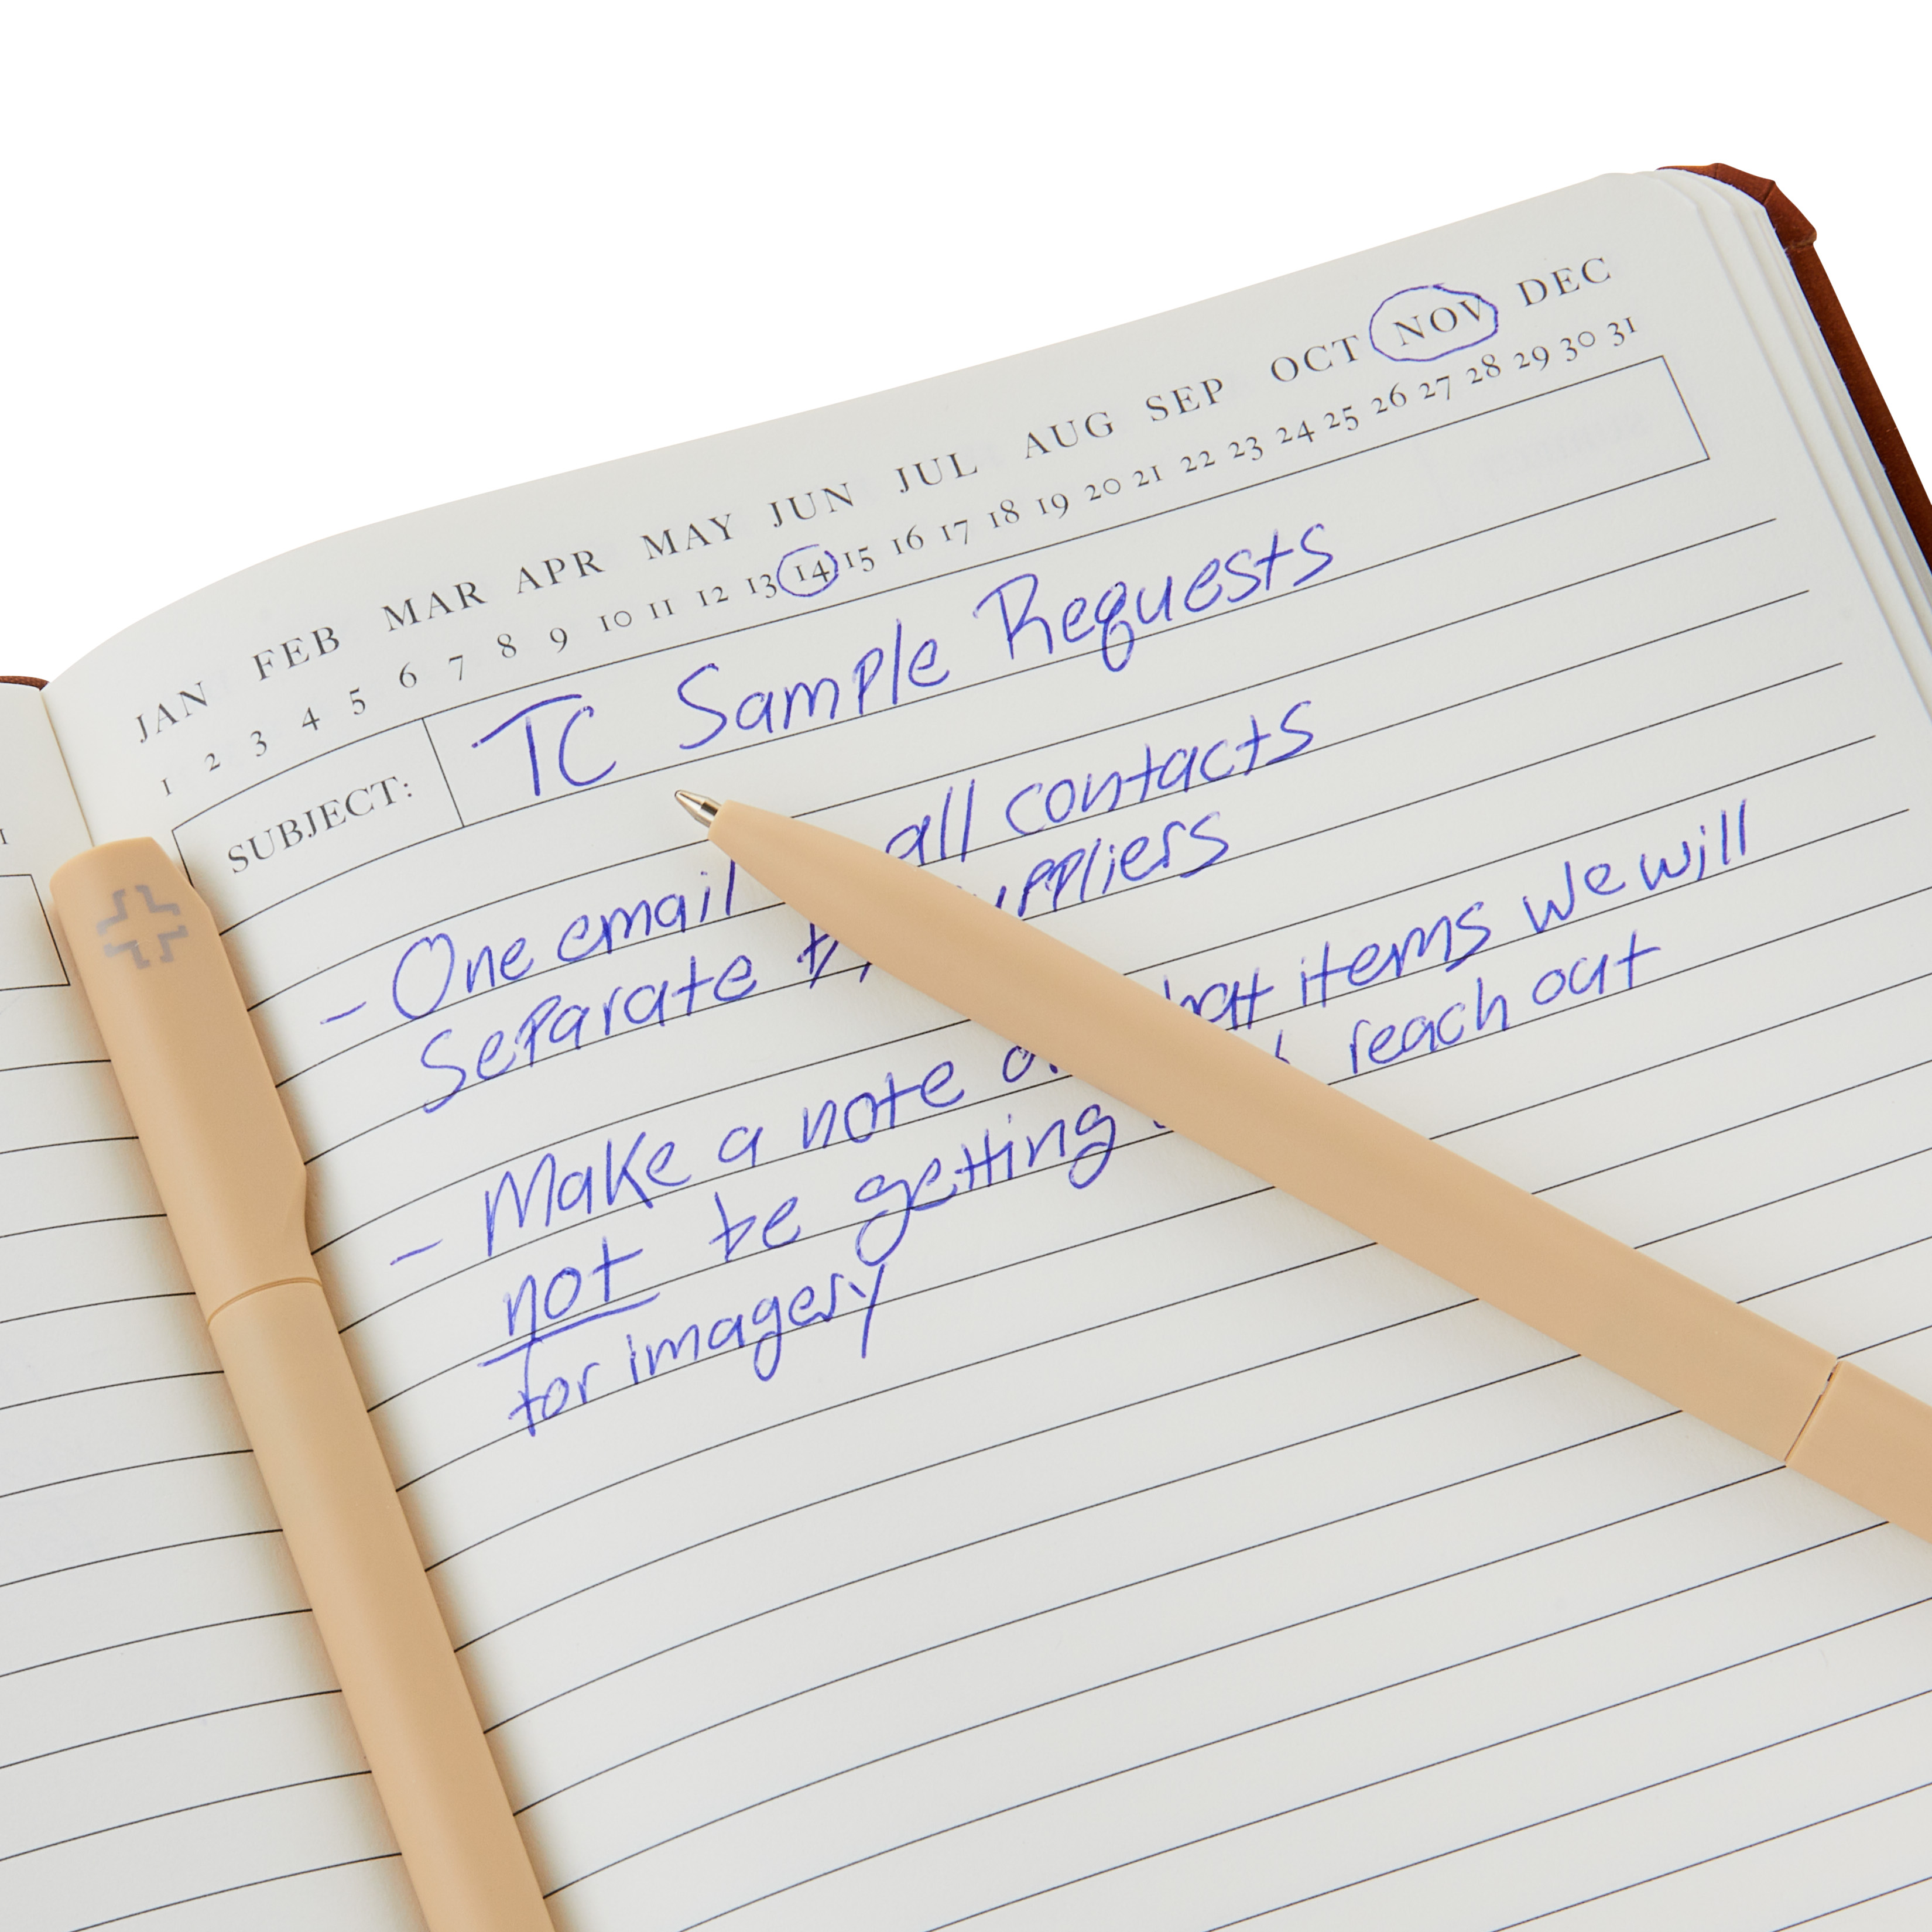 JAN FEB MAR APR MAY JUN JUL AUG SEP OCT NOV DEC
1 2 3 4 5 6 7 8 9 10 11 12 13 14 15 16 17 18 19 20 21 22 23 24 25 26 27 28 29 30 31
SUBJECT: TC Sample Requests
- One email all contacts
Separate
- Make a note items we will
not be getting reach out
for imagery